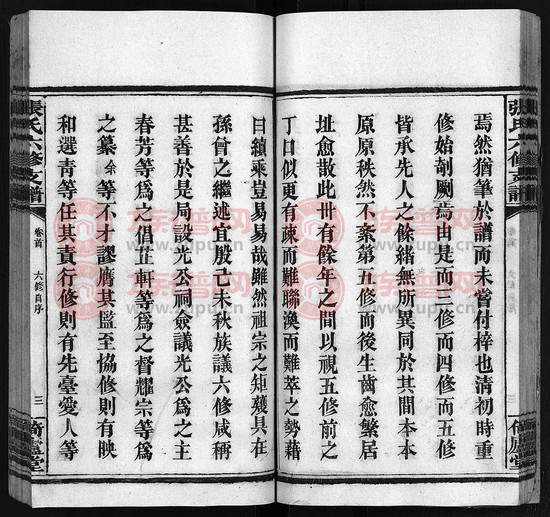 焉然猶筆於譜而未嘗付梓也清初時重
修始剞劂焉由是而三修而四修而五修
皆承先人之餘緒無所異同於其間本本
原原秩然不紊第五修而後生齒愈繁居
址愈散此卅有餘年之間以視五修前之
丁口似更有疎而難聯渙而難萃之勢藉
曰續乘豈易易哉雖然祖宗之矩矱具在
孫曾之繼述宜殷己未秋族議六修咸稱
甚善於是局設光公祠僉議光公為之主
春芳等為之倡芷軒等為之督耀宗等為
之纂余等不才謬膺其監至協修則有映
和選青等任其責行修則有先臺愛人等
張氏六修支譜
卷首
六修自序
三
張氏六修支譜
卷首
六修自序
三
族譜网
www.zupu.cn